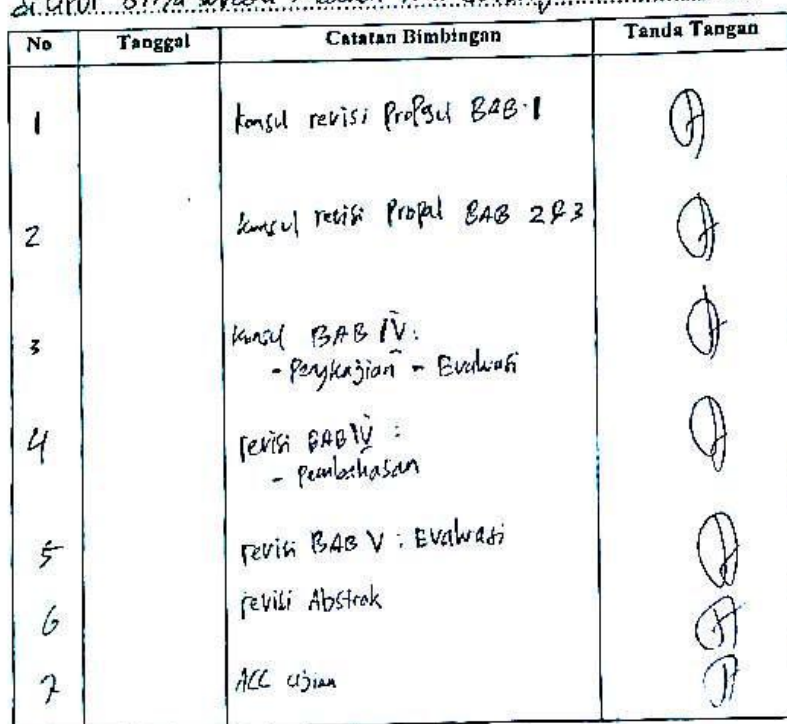 di
No Tanggal Catatan Bimbingan Tanda Tangan
1 konsul revisi Propsul BAB 1
2 konsul revisi Propal BAB 2&3
3 konsul BAB IV:
- Pengkajian - Evaluasi
4 revisi BAB IV :
- pembahasan
5 revisi BAB V : Evaluasi
6 revisi Abstrak
7 ACC Ujian